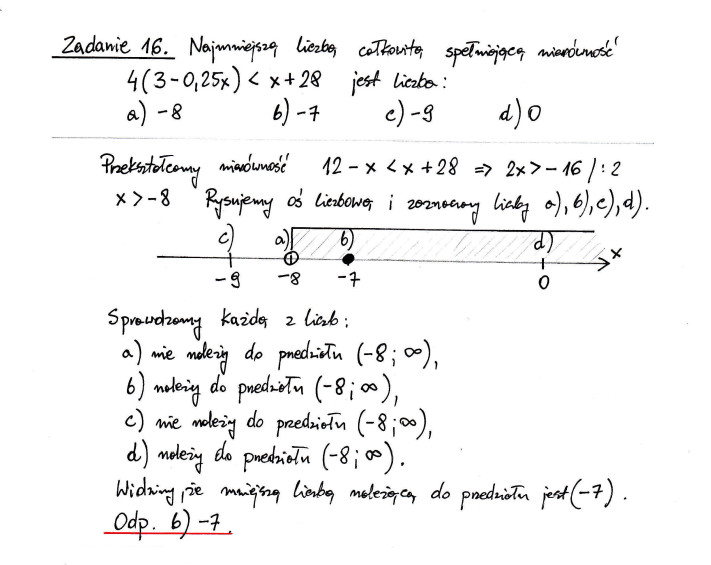 Zadanie 16. Najmniejszą liczbą całkowitą spełniającą nierówność
4(3-0,25x) < x+28 jest liczba:
a) -8 b) -7 c) -9 d) 0
Przekształcamy nierówność 12-x < x+28 => 2x > -16 /:2
x > -8 Rysujemy oś liczbową i zaznaczamy liczby a), b), c), d).
c) a) b) d) x
-9 -8 -7 0
Sprawdzamy każdą z liczb:
a) nie należy do przedziału (-8; ∞),
b) należy do przedziału (-8; ∞),
c) nie należy do przedziału (-8; ∞),
d) należy do przedziału (-8; ∞).
Widzimy, że mniejszą liczbą należącą do przedziału jest (-7).
Odp. b) -7.